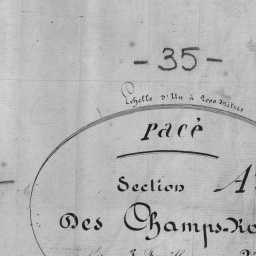 - 35 -
Echelle d'Un à 2000 Mètres
Pacé
Section A
Des Champs-Ro